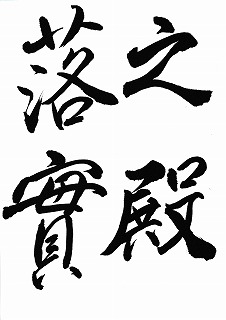 之殿
落實